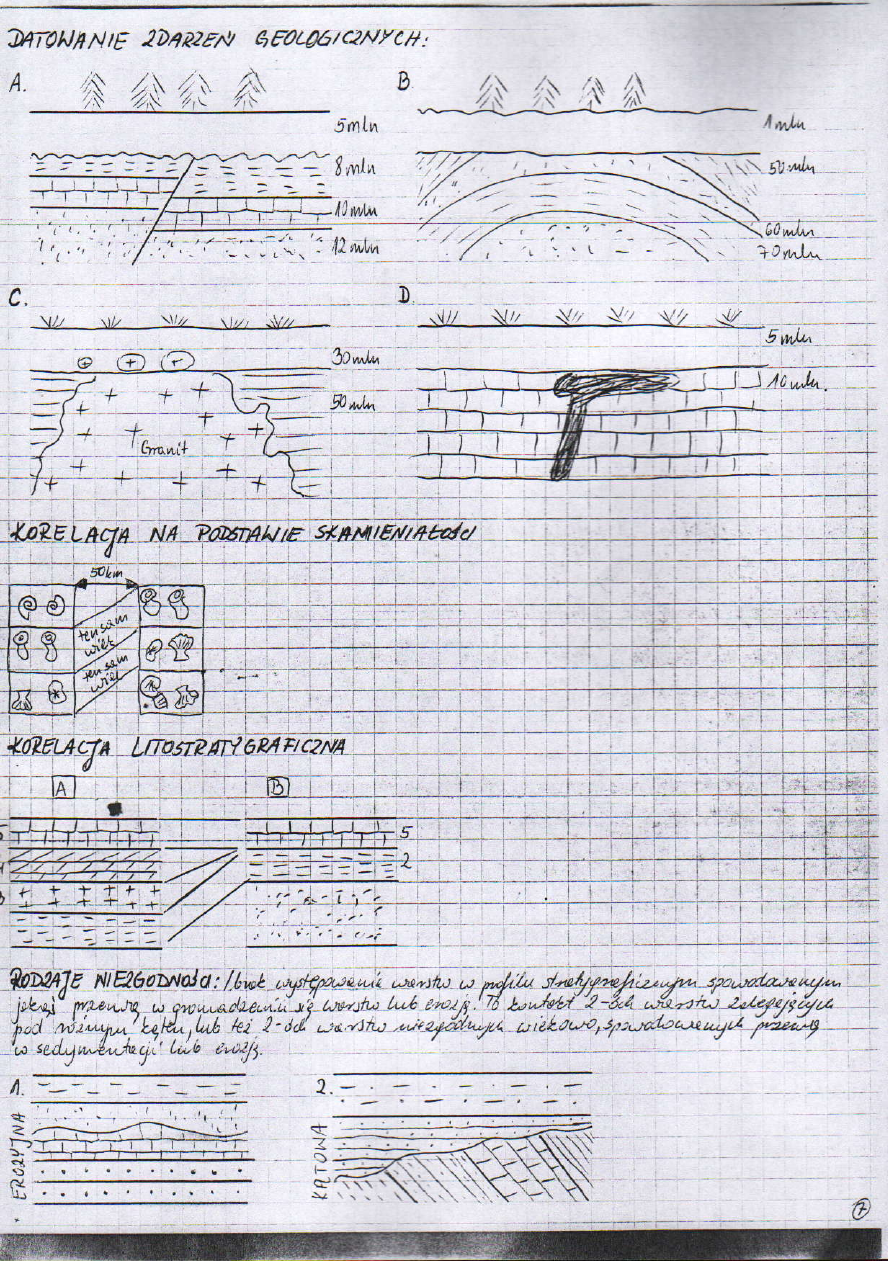 DATOWANIE ZDARZEŃ GEOLOGICZNYCH:
A.
5mln
8mln
10mln
12mln
B.
1mln
50mln
60mln
70mln
C.
30mln
50mln
Granit
D.
5mln
10mln.
KORELACJA NA PODSTAWIE SKAMIENIAŁOŚCI
50km
ten sam
wiek
ten sam
wiek
KORELACJA LITOSTRATYGRAFICZNA
A
B
5
2
RODZAJE NIEZGODNOŚCI: /brak występowania warstw w profilu stratygraficznym spowodowanym
jakąś przerwą w gromadzeniu się warstw lub erozją. To kontakt 2-óch warstw zalegających
pod różnym kątem, lub też 2-óch warstw niezgodnych wiekowo, spowodowanych przerwą
w sedymentacji lub erozją.
1.
EROZYJNA
2.
KĄTOWA
7